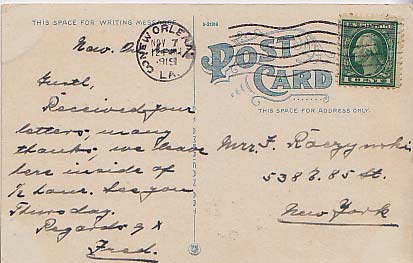 THIS SPACE FOR WRITING MESSAGES
NEW ORLEANS
NOV 7
LA.
POST
CARD
1 CENT 1
THIS SPACE FOR ADDRESS ONLY.
New. Orleans
Received your
letters, many
thanks, we leave
here inside of
½ hour. See you
Thursday.
Regards & X
Fred.
Mrs. F. Raczynski
538 E. 85 St.
New York